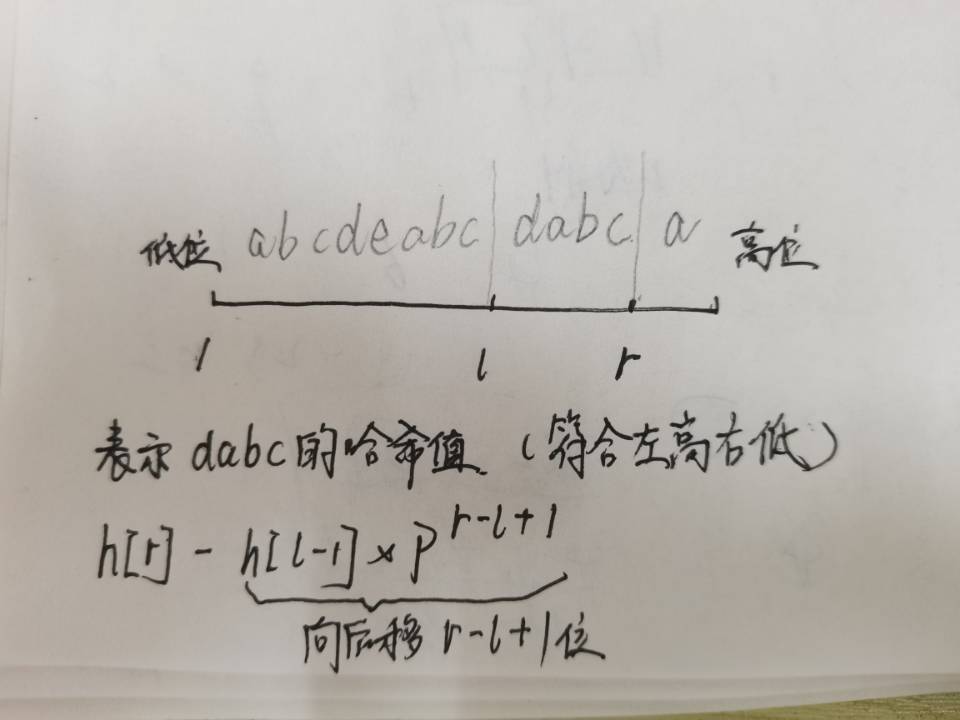 低位 abcdeabc dabc a 高位
1 l r
表示 dabc 的哈希值 (符合左高右低)
h[r] - h[l-1] × P^{r-l+1}
向后移 r-l+1位